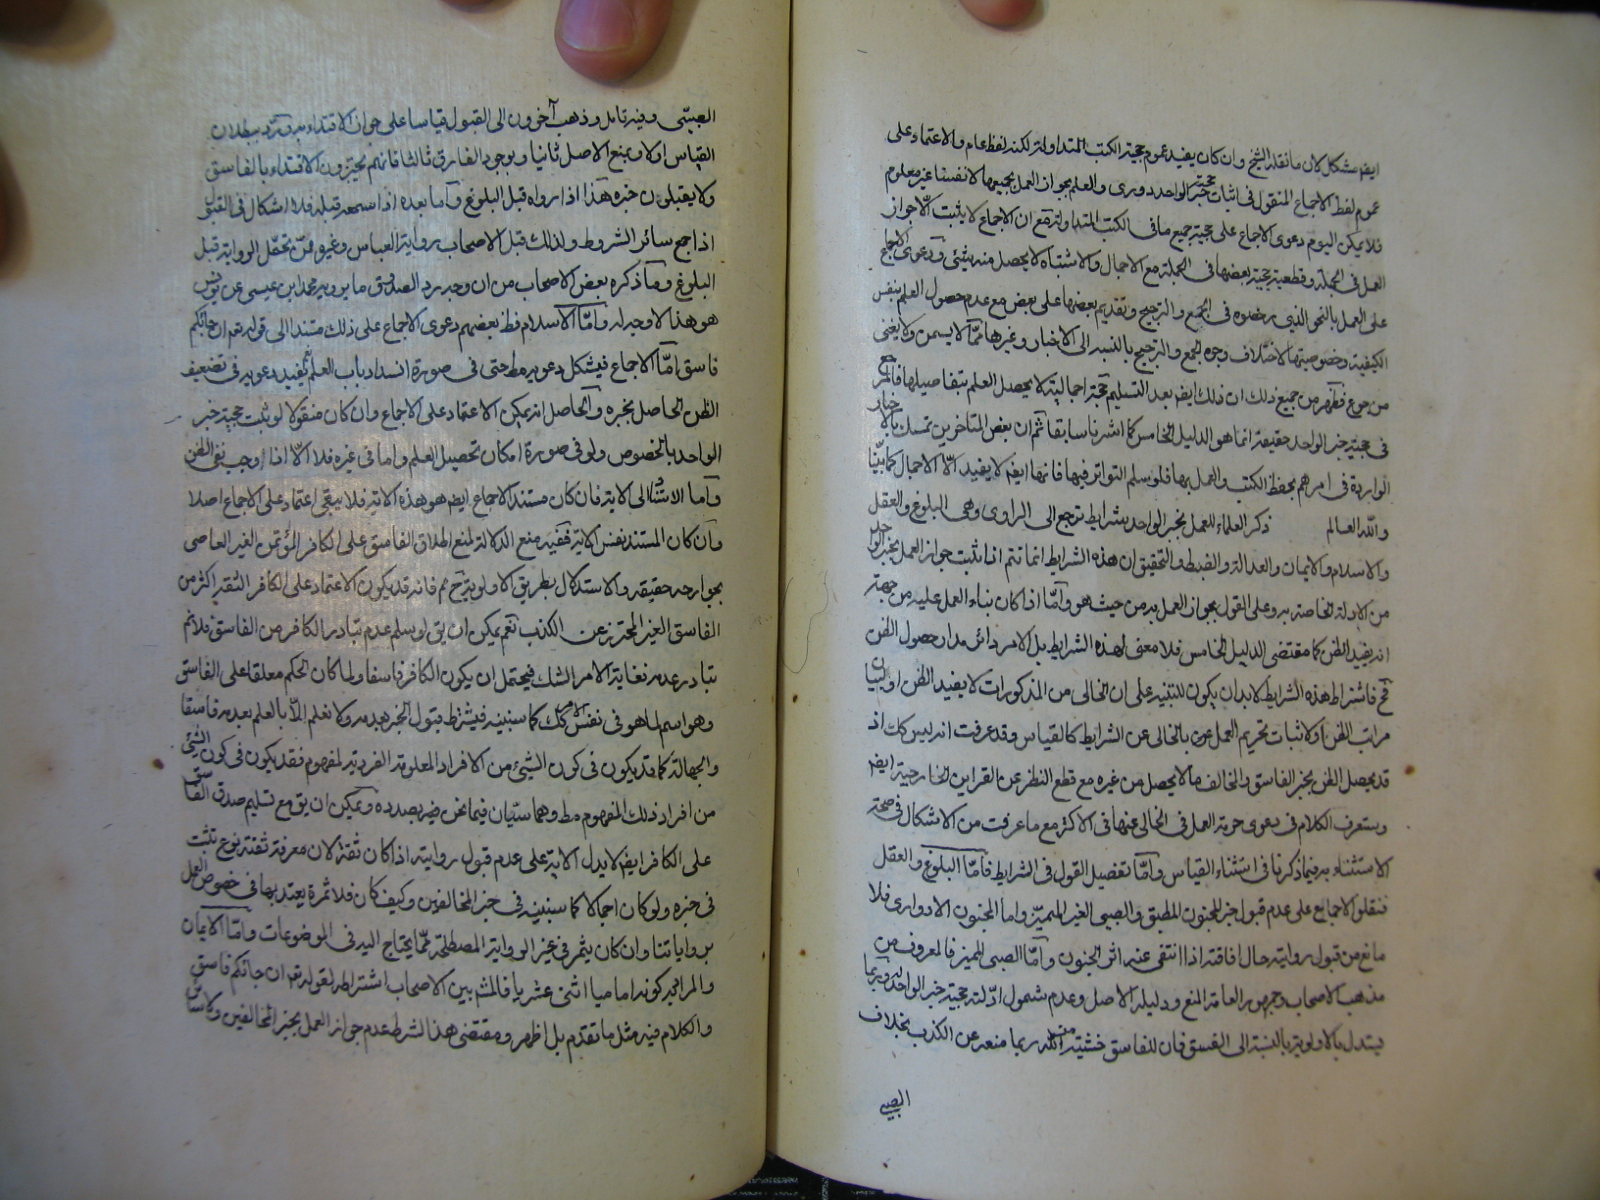 ايضا مشكل لان ما نقله الشيخ وان كان يفيد عموم حجية الكتب المتداولة لكنه لفظ عام والاعتماد على
عموم لفظ الاجماع المنقول في اثبات حجية خبر الواحد دوري والعلم بجواز العمل بجميعها لانفسنا غير معلوم
فلا يمكن اليوم دعوى الاجماع على حجية جميع ما في الكتب المتداولة مع ان الاجماع لا يثبت الا جواز
العمل في الجملة وقطعية حجية بعضها في الجملة مع الاجمال والاشتباه لا يحصل منه شيئ ودعوى الاجماع
على العمل بالنحو الذي رخصوه في الجمع والترجيح وتقديم بعضها على بعض مع عدم حصول العلم بنفس
الكيفية وخصوصيتها لاختلاف وجوه الجمع والترجيح بالنسبة الى الاخبار وغيرها مما لا يسمن ولا يغنى
من جوع فظهر من جميع ذلك ان ذلك ايضا بعد التسليم حجة اجمالية لا يحصل العلم بتفاصيلها فالمرجع
في حجية خبر الواحد حقيقة انما هو الدليل الخامس كما اشرنا سابقا ثم ان بعض المتاخرين تمسك بالاخبار
الواردة في امرهم بحفظ الكتب والعمل بها فلو سلم التواتر فيها فانها ايضا لا يفيد الا الاجمال كما بيّنا
والله العالم ذكر العلماء للعمل بخبر الواحد شرايط ترجع الى الراوى وهى البلوغ والعقل
والاسلام والايمان والعدالة والضبط والتحقيق ان هذه الشرايط انما تتم اذا ثبت جواز العمل بخبر الواحد
من الادلة الخاصة به وعلى القول بجواز العمل به من حيث هو واما اذا كان بناء العمل عليه من جهة
انه يفيد الظن كما هو مقتضى الدليل الخامس فلا معنى لهذه الشرايط بل الامر دائر مدار حصول الظن
فح فاشتراط هذه الشرايط لا بد ان يكون للتنبيه على ان الخالى من المذكورات لا يفيد الظن او لبيان
مراتب الظن او لاثبات تحريم العمل بالخالى عن الشرايط كالقياس وقد عرفت انه ليس كك اذ
قد يحصل الظن بخبر الفاسق والمخالف ما لا يحصل من غيره مع قطع النظر عن القراين الخارجية ايضا
وستعرف الكلام في دعوى حرمة العمل في الخالى عنها في الاكثر مع ما عرفت من الاشكال في صحة
الاستثناء به فيما ذكرنا في استثناء القياس واما تفصيل القول في الشرايط فاما البلوغ والعقل
فنقلوا الاجماع على عدم قبول خبر المجنون المطبق والصبى الغير المميز واما المجنون الادوارى فلا
مانع من قبول روايته حال افاقته اذا انتفى عنه اثر الجنون واما الصبى المميز فالمعروف من
مذهب الاصحاب وجمهور العامة المنع ودليله الاصل وعدم شمول ادلة حجية خبر الواحد له وربما
يستدل بالاولوية بالنسبة الى الفسق فان للفاسق خشية من الله ربما منعه عن الكذب بخلاف
الصبى
الصبّى وفيه تامل وذهب آخرون الى القبول قياسا على جواز الاقتداء به ويرد ببطلان
القياس اولا وبمنع الاصل ثانيا وبوجود الفارق ثالثا فانهم يجيزون الاقتداء بالفاسق
ولا يقبلون خبره هذا اذا رواه قبل البلوغ واما بعده اذا سمعه قبله فلا اشكال في القبول
اذا جمع سائر الشروط ولذلك قبل الاصحاب رواية ابن العباس وغيره ممن تحمّل الرواية قبل
البلوغ وما ذكره بعض الاصحاب من ان وجه رد الصدوق ما يرويه محمد ابن عيسى عن يونس
هو هذا لا وجه له واما الاسلام فظ بعضهم دعوى الاجماع على ذلك مستندا الى قوله تعم ان جائكم
فاسق امّا الاجماع فيشكل دعويه مط حتى في صورة انسداد باب العلم ثم يفيد دعويه في تضعيف
الظن الحاصل بخبره والحاصل انه يمكن الاعتماد على الاجماع وان كان منقولا لو ثبت حجية خبر
الواحد بالخصوص ولو في صورة امكان تحصيل العلم واما في غيره فلا الا اذا اوجب نفى الظن
واما الاستناد الى الاية فان كان مستند الاجماع ايضا هو هذه الاية فلا يبقى اعتماد على الاجماع اصلا
وان كان المستند نفس الاية ففيه منع الدلالة لمنع اطلاق الفاسق على الكافر المؤتمن الغير العاصى
بجوارحه حقيقة والاستدلال بطريق الاولوية ح مم فانه قد يكون الاعتماد على الكافر الثقة اكثر من
الفاسق الغير المحترز عن الكذب نعم يمكن ان يق لو سلم عدم تبادر الكافر من الفاسق فلا نم
تبادر عدمه فغاية الامر الشك فيحتمل ان يكون الكافر فاسقا ولما كان الحكم معلقا على الفاسق
وهو اسم لما هو في نفس الامر كك كما سنبينه فيشترط قبول الخبر بعدمه ولا نعلم الا بالعلم بعدمه فاسقا
والجهالة كما قد يكون في كون الشيئ من الافراد المعلومة الفردية لمفهوم فقد يكون في كون الشيئ
من افراد ذلك المفهوم مط وهما ستيان فيما نحن فيه بصدده ويمكن ان يق مع تسليم صدق الفاسق
على الكافر ايضا لا يدل الاية على عدم قبول روايته اذا كان ثقة لان معرفة ثقته نوع تثبت
في خبره ولو كان اجمالا كما سنبينه في خبر المخالفين وكيف كان فلا ثمرة يعتد بها في خصوص العمل
برواياتنا وان كان يثمر في غير الرواية المصطلحة مما يحتاج اليه في الموضوعات واما الايمان
والمراد به كونه اماميا اثنى عشريا فالمشهور بين الاصحاب اشتراطه لقوله تعم ان جائكم فاسق
والكلام فيه مثل ما تقدم بل اظهر ومقتضى هذا الشرط عدم جواز العمل بخبر المخالفين ولا سائر